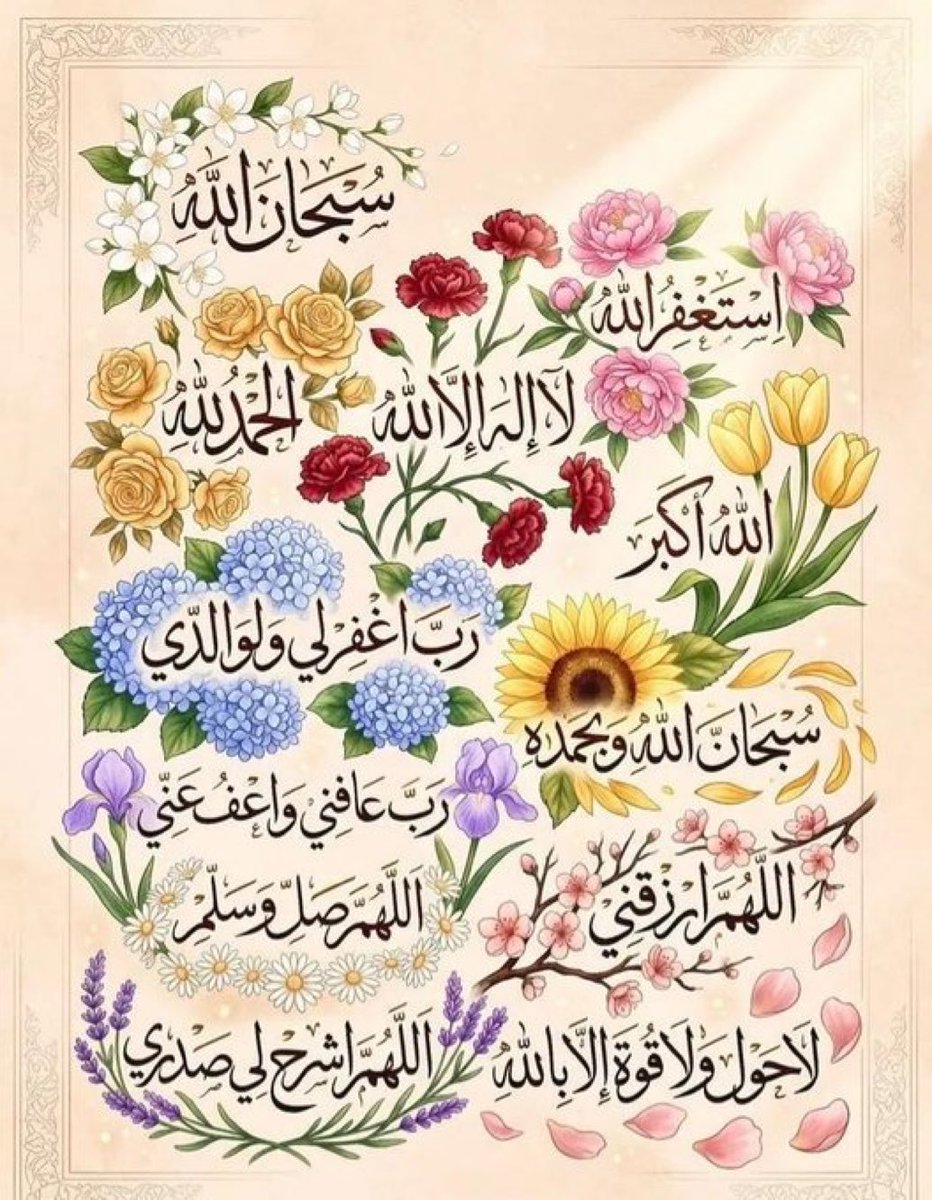 سُبْحَانَ اللّٰهِ
اِسْتَغْفِرُ اللّٰهَ
الْحَمْدُ لِلّٰهِ
لَآ إِلٰهَ إِلَّا اللّٰهُ
اللّٰهُ أَكْبَر
رَبِّ اغْفِرْ لِي وَلِوَالِدَيّ
سُبْحَانَ اللّٰهِ وَبِحَمْدِهِ
رَبِّ عَافِنِي وَاعْفُ عَنِّي
اَللّٰهُمَّ صَلِّ وَسَلِّمْ
اَللّٰهُمَّ ارْزُقْنِي
اَللّٰهُمَّ اشْرَحْ لِي صَدْرِي
لَا حَوْلَ وَلَا قُوَّةَ إِلَّا بِاللّٰهِ